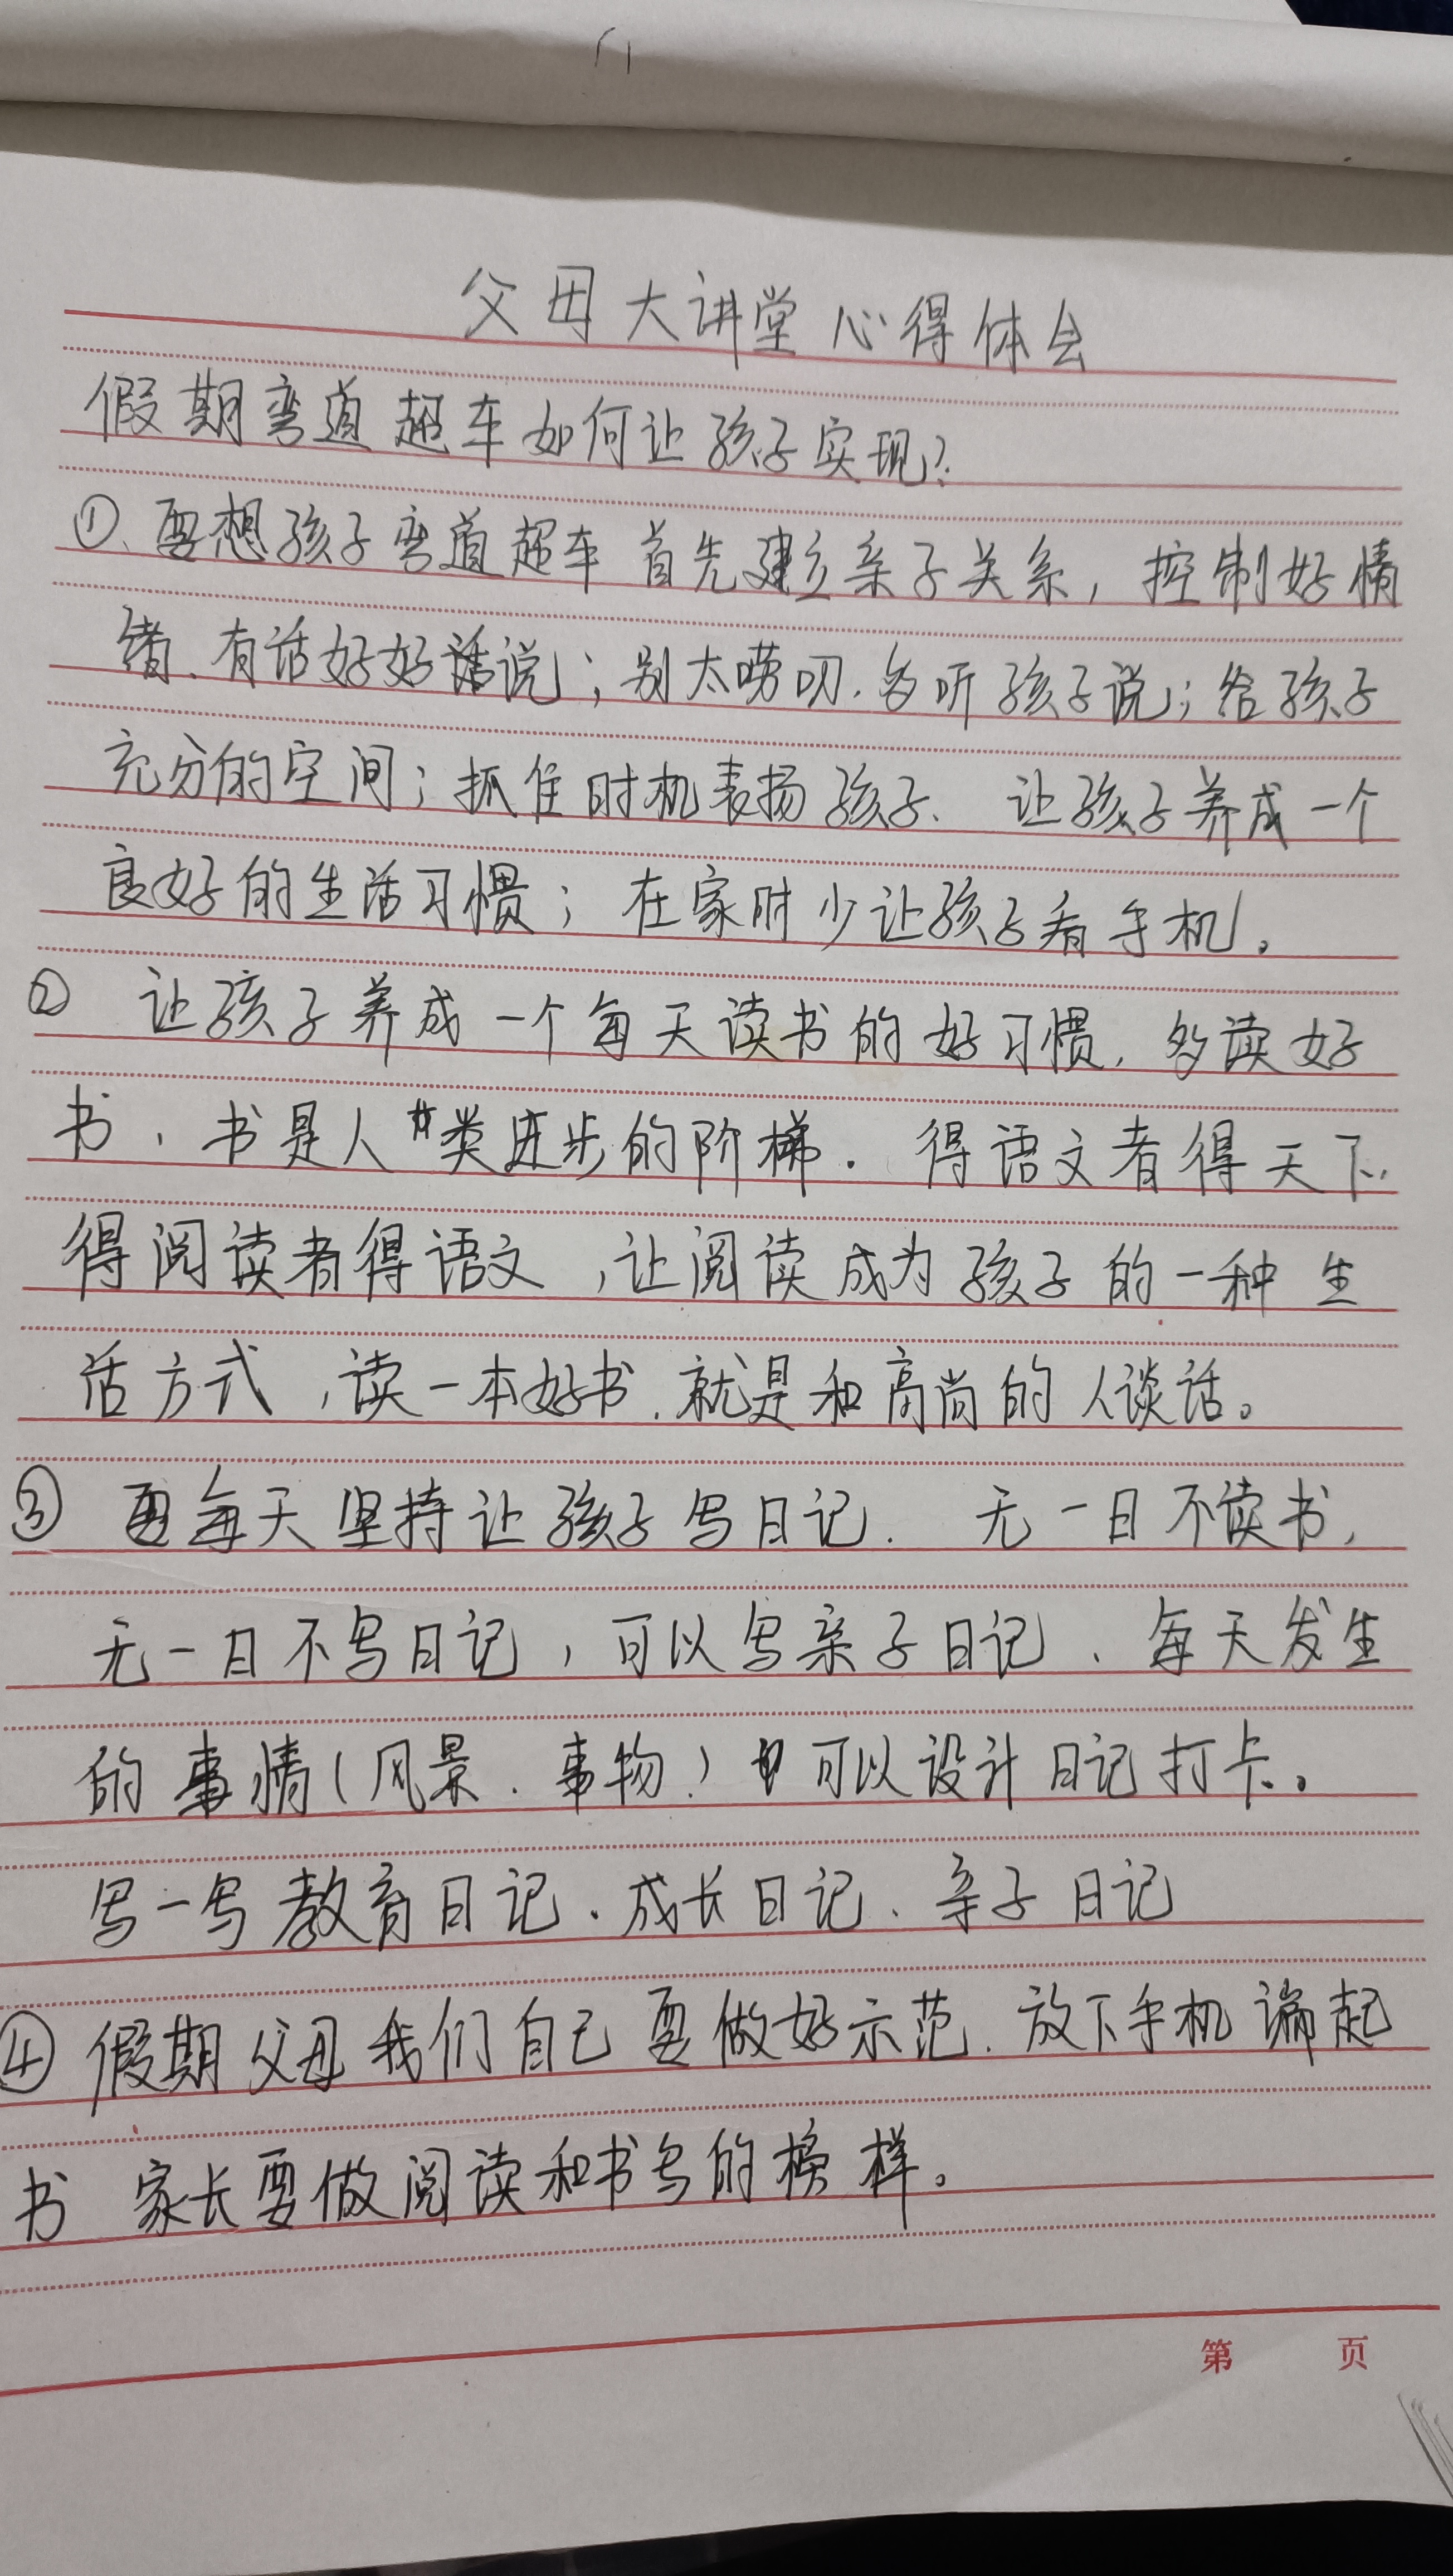 父母大讲堂心得体会
假期弯道超车如何让孩子实现?
①、要想孩子弯道超车 首先建立亲子关系, 控制好情
绪、有话好好说; 别太唠叨、多听孩子说; 给孩子
充分的空间; 抓住时机表扬孩子、 让孩子养成一个
良好的生活习惯; 在家时少让孩子看手机。
② 让孩子养成一个每天读书的好习惯, 多读好
书、书是人类进步的阶梯. 得语文者得天下.
得阅读者得语文, 让阅读成为孩子的一种生
活方式, 读一本好书、就是和高尚的人谈话。
③ 要每天坚持让孩子写日记. 无一日不读书,
无一日不写日记, 可以写亲子日记、每天发生
的事情(风景、事物) 可以设计日记打卡。
写一写教育日记、成长日记、亲子日记
④ 假期父母我们自己要做好示范、放下手机 起
书 家长要做阅读和书写的榜样。
第 页